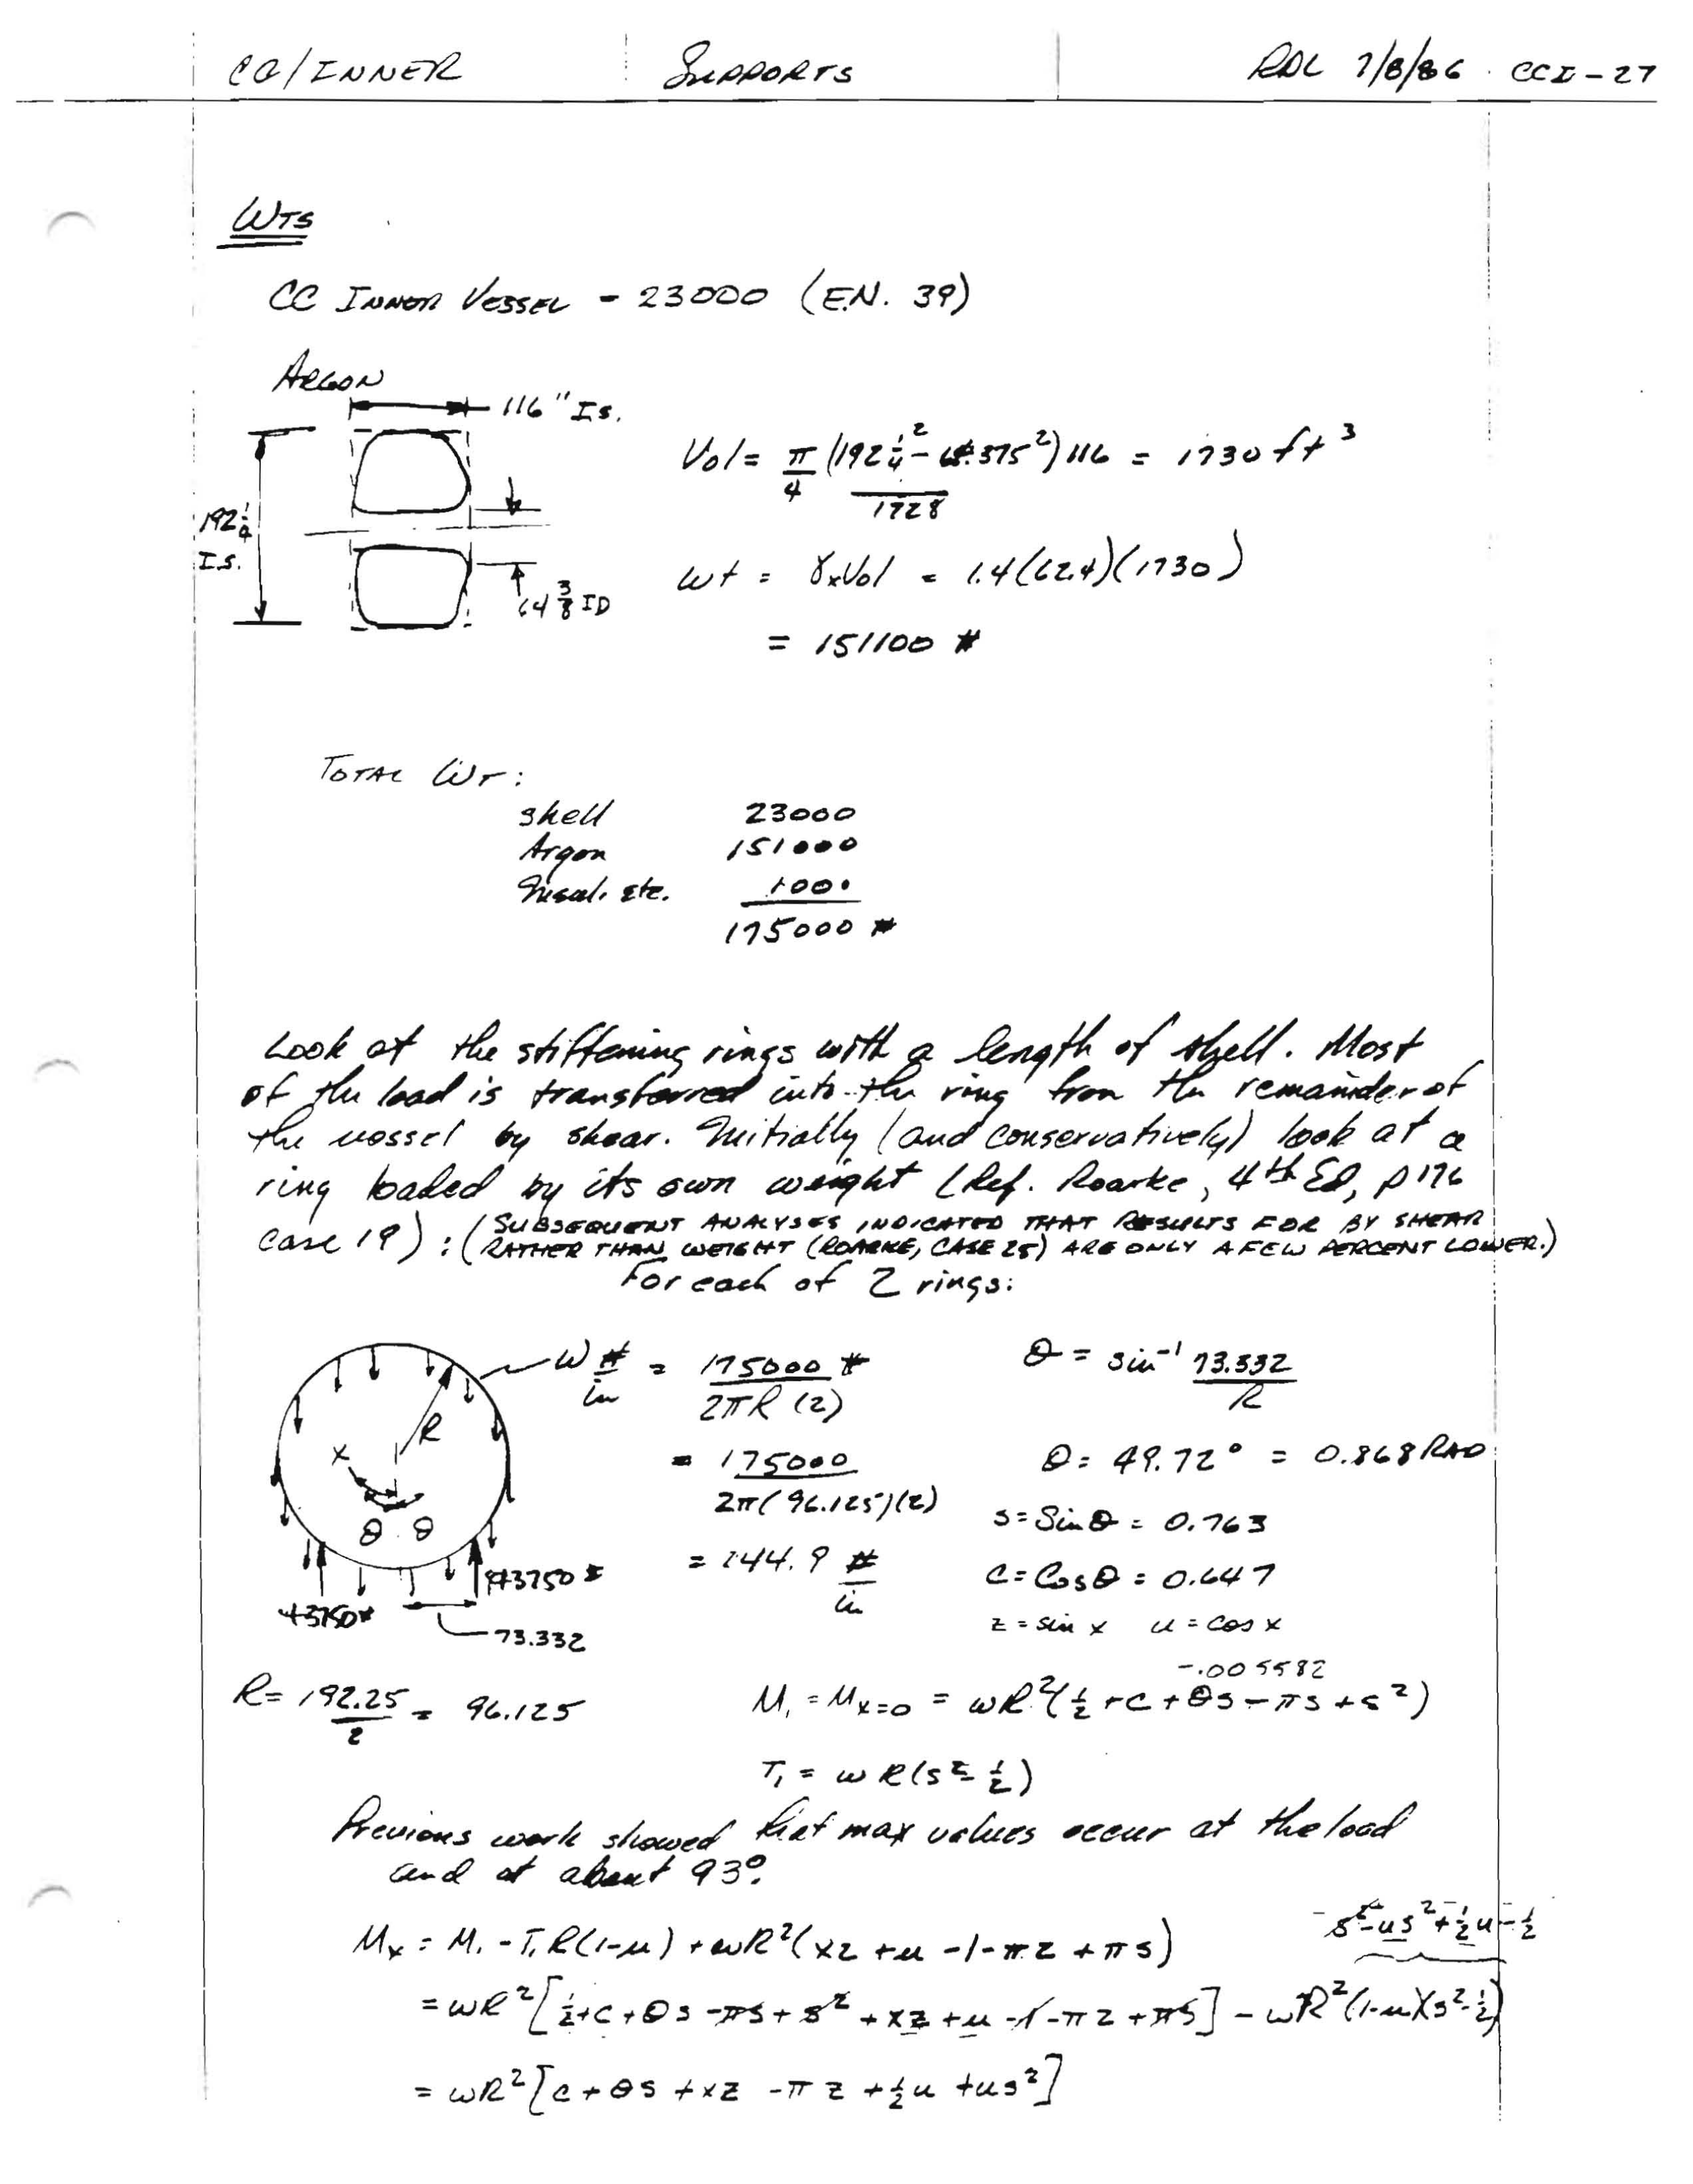 CC/INNER SUPPORTS RDL 7/8/86 CCI-27
WTS
CC INNER VESSEL - 23000 (E.N. 39)
ARGON
116" I.S.
192¼ I.S.
64 3/8 ID
Vol = π/4 (192¼² - 64.375²) 116 / 1728 = 1730 ft³
wt = γ x Vol = 1.4(62.4)(1730)
= 151100 #
TOTAL WT:
shell 23000
Argon 151000
Insul. etc. 1000
175000 #
Look at the stiffening rings with a length of shell. Most
of the load is transferred into the ring from the remainder of
the vessel by shear. Initially (and conservatively) look at a
ring loaded by its own weight (Ref. Roarke, 4th Ed, p 176
case 19): (SUBSEQUENT ANALYSES INDICATED THAT RESULTS FOR BY SHEAR
RATHER THAN WEIGHT (ROARKE, CASE 25) ARE ONLY A FEW PERCENT LOWER.)
For each of 2 rings:
w #/in = 175000 # / 2πR (2)
= 175000 / 2π(96.125)(2)
= 144.9 #/in
R
x
θ θ
43750 #
43750 #
73.332
θ = sin⁻¹ 73.332 / R
θ = 49.72° = 0.868 RAD
s = Sin θ = 0.763
c = Cos θ = 0.647
z = sin x u = cos x
R = 192.25 / 2 = 96.125
-.005582
M₁ = Mx=0 = wR²(½ + c + θs - πs + s²)
T₁ = wR(s² - ½)
Previous work showed that max values occur at the load
and at about 93°.
s² - us² + ½u - ½
Mx = M₁ - T₁R(1-u) + wR²(xz + u - 1 - πz + πs)
= wR²[½ + c + θs - πs + s² + xz + u - 1 - πz + πs] - wR²(1-u)(s² - ½)
= wR²[c + θs + xz - πz + ½u + us²]